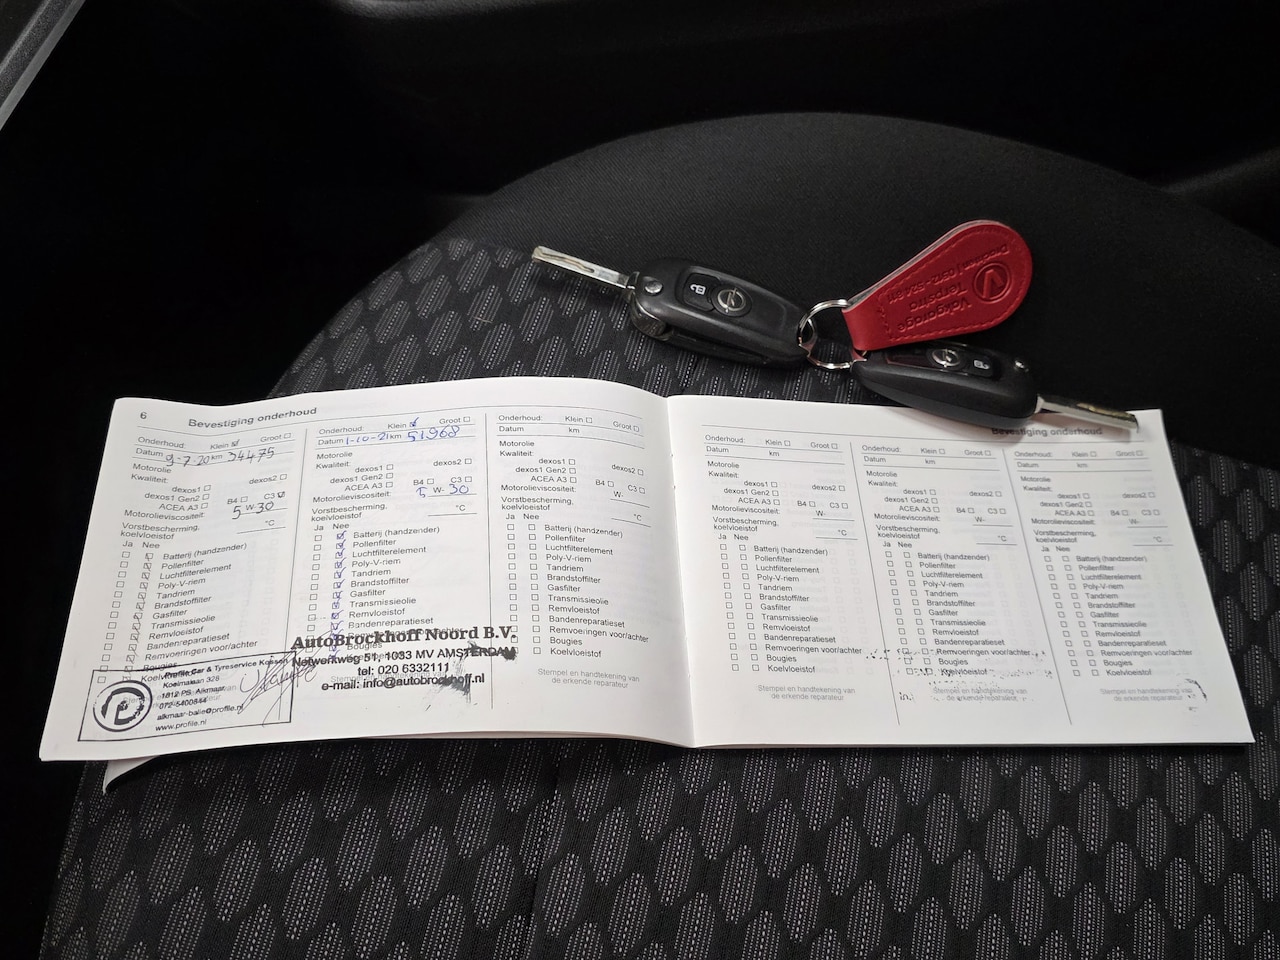 6
Bevestiging onderhoud
Onderhoud: Klein Groot
Datum 9-7-20 km 34475
Motorolie
Kwaliteit:
dexos1
dexos1 Gen2
ACEA A3 B4 C3
Motorolieviscositeit: 5 W-30
Vorstbescherming,
koelvloeistof °C
Ja Nee
Batterij (handzender)
Pollenfilter
Luchtfilterelement
Poly-V-riem
Tandriem
Brandstoffilter
Gasfilter
Transmissieolie
Remvloeistof
Bandenreparatieset
Remvoeringen voor/achter
Bougies
Koelvloeistof
Profile Car & Tyreservice
Koelmalaan 328
1812 PS Alkmaar
072-5400844
alkmaar-balie@profile.nl
www.profile.nl
Onderhoud: Klein Groot
Datum 1-10-21 km 51968
Motorolie
Kwaliteit:
dexos1 dexos2
dexos1 Gen2
ACEA A3 B4 C3
Motorolieviscositeit: 5 W- 30
Vorstbescherming,
koelvloeistof °C
Ja Nee
Batterij (handzender)
Pollenfilter
Luchtfilterelement
Poly-V-riem
Tandriem
Brandstoffilter
Gasfilter
Transmissieolie
Remvloeistof
Bandenreparatieset
Bougies
AutoBrockhoff Noord B.V.
Netwerkweg 51, 1033 MV AMSTERDAM
tel: 020 6332111
e-mail: info@autobrockhoff.nl
Onderhoud: Klein Groot
Datum km
Motorolie
Kwaliteit:
dexos1 dexos2
dexos1 Gen2
ACEA A3 B4 C3
Motorolieviscositeit: W-
Vorstbescherming,
koelvloeistof °C
Ja Nee
Batterij (handzender)
Pollenfilter
Luchtfilterelement
Poly-V-riem
Tandriem
Brandstoffilter
Gasfilter
Transmissieolie
Remvloeistof
Bandenreparatieset
Remvoeringen voor/achter
Bougies
Koelvloeistof
Stempel en handtekening van
de erkende reparateur
Bevestiging onderhoud
Onderhoud: Klein Groot
Datum km
Motorolie
Kwaliteit:
dexos1 dexos2
dexos1 Gen2
ACEA A3 B4 C3
Motorolieviscositeit: W-
Vorstbescherming,
koelvloeistof °C
Ja Nee
Batterij (handzender)
Pollenfilter
Luchtfilterelement
Poly-V-riem
Tandriem
Brandstoffilter
Gasfilter
Transmissieolie
Remvloeistof
Bandenreparatieset
Remvoeringen voor/achter
Bougies
Koelvloeistof
Stempel en handtekening van
de erkende reparateur
Onderhoud: Klein Groot
Datum km
Motorolie
Kwaliteit:
dexos1 dexos2
dexos1 Gen2
ACEA A3 B4 C3
Motorolieviscositeit: W-
Vorstbescherming,
koelvloeistof °C
Ja Nee
Batterij (handzender)
Pollenfilter
Luchtfilterelement
Poly-V-riem
Tandriem
Brandstoffilter
Gasfilter
Transmissieolie
Remvloeistof
Bandenreparatieset
Remvoeringen voor/achter
Bougies
Koelvloeistof
Stempel en handtekening van
de erkende reparateur
Onderhoud: Klein Groot
Datum km
Motorolie
Kwaliteit:
dexos1 dexos2
dexos1 Gen2
ACEA A3 B4 C3
Motorolieviscositeit: W-
Vorstbescherming,
koelvloeistof °C
Ja Nee
Batterij (handzender)
Pollenfilter
Luchtfilterelement
Poly-V-riem
Tandriem
Brandstoffilter
Gasfilter
Transmissieolie
Remvloeistof
Bandenreparatieset
Remvoeringen voor/achter
Bougies
Koelvloeistof
Stempel en handtekening van
de erkende reparateur
Vakgarage
Terpstra
Drachten